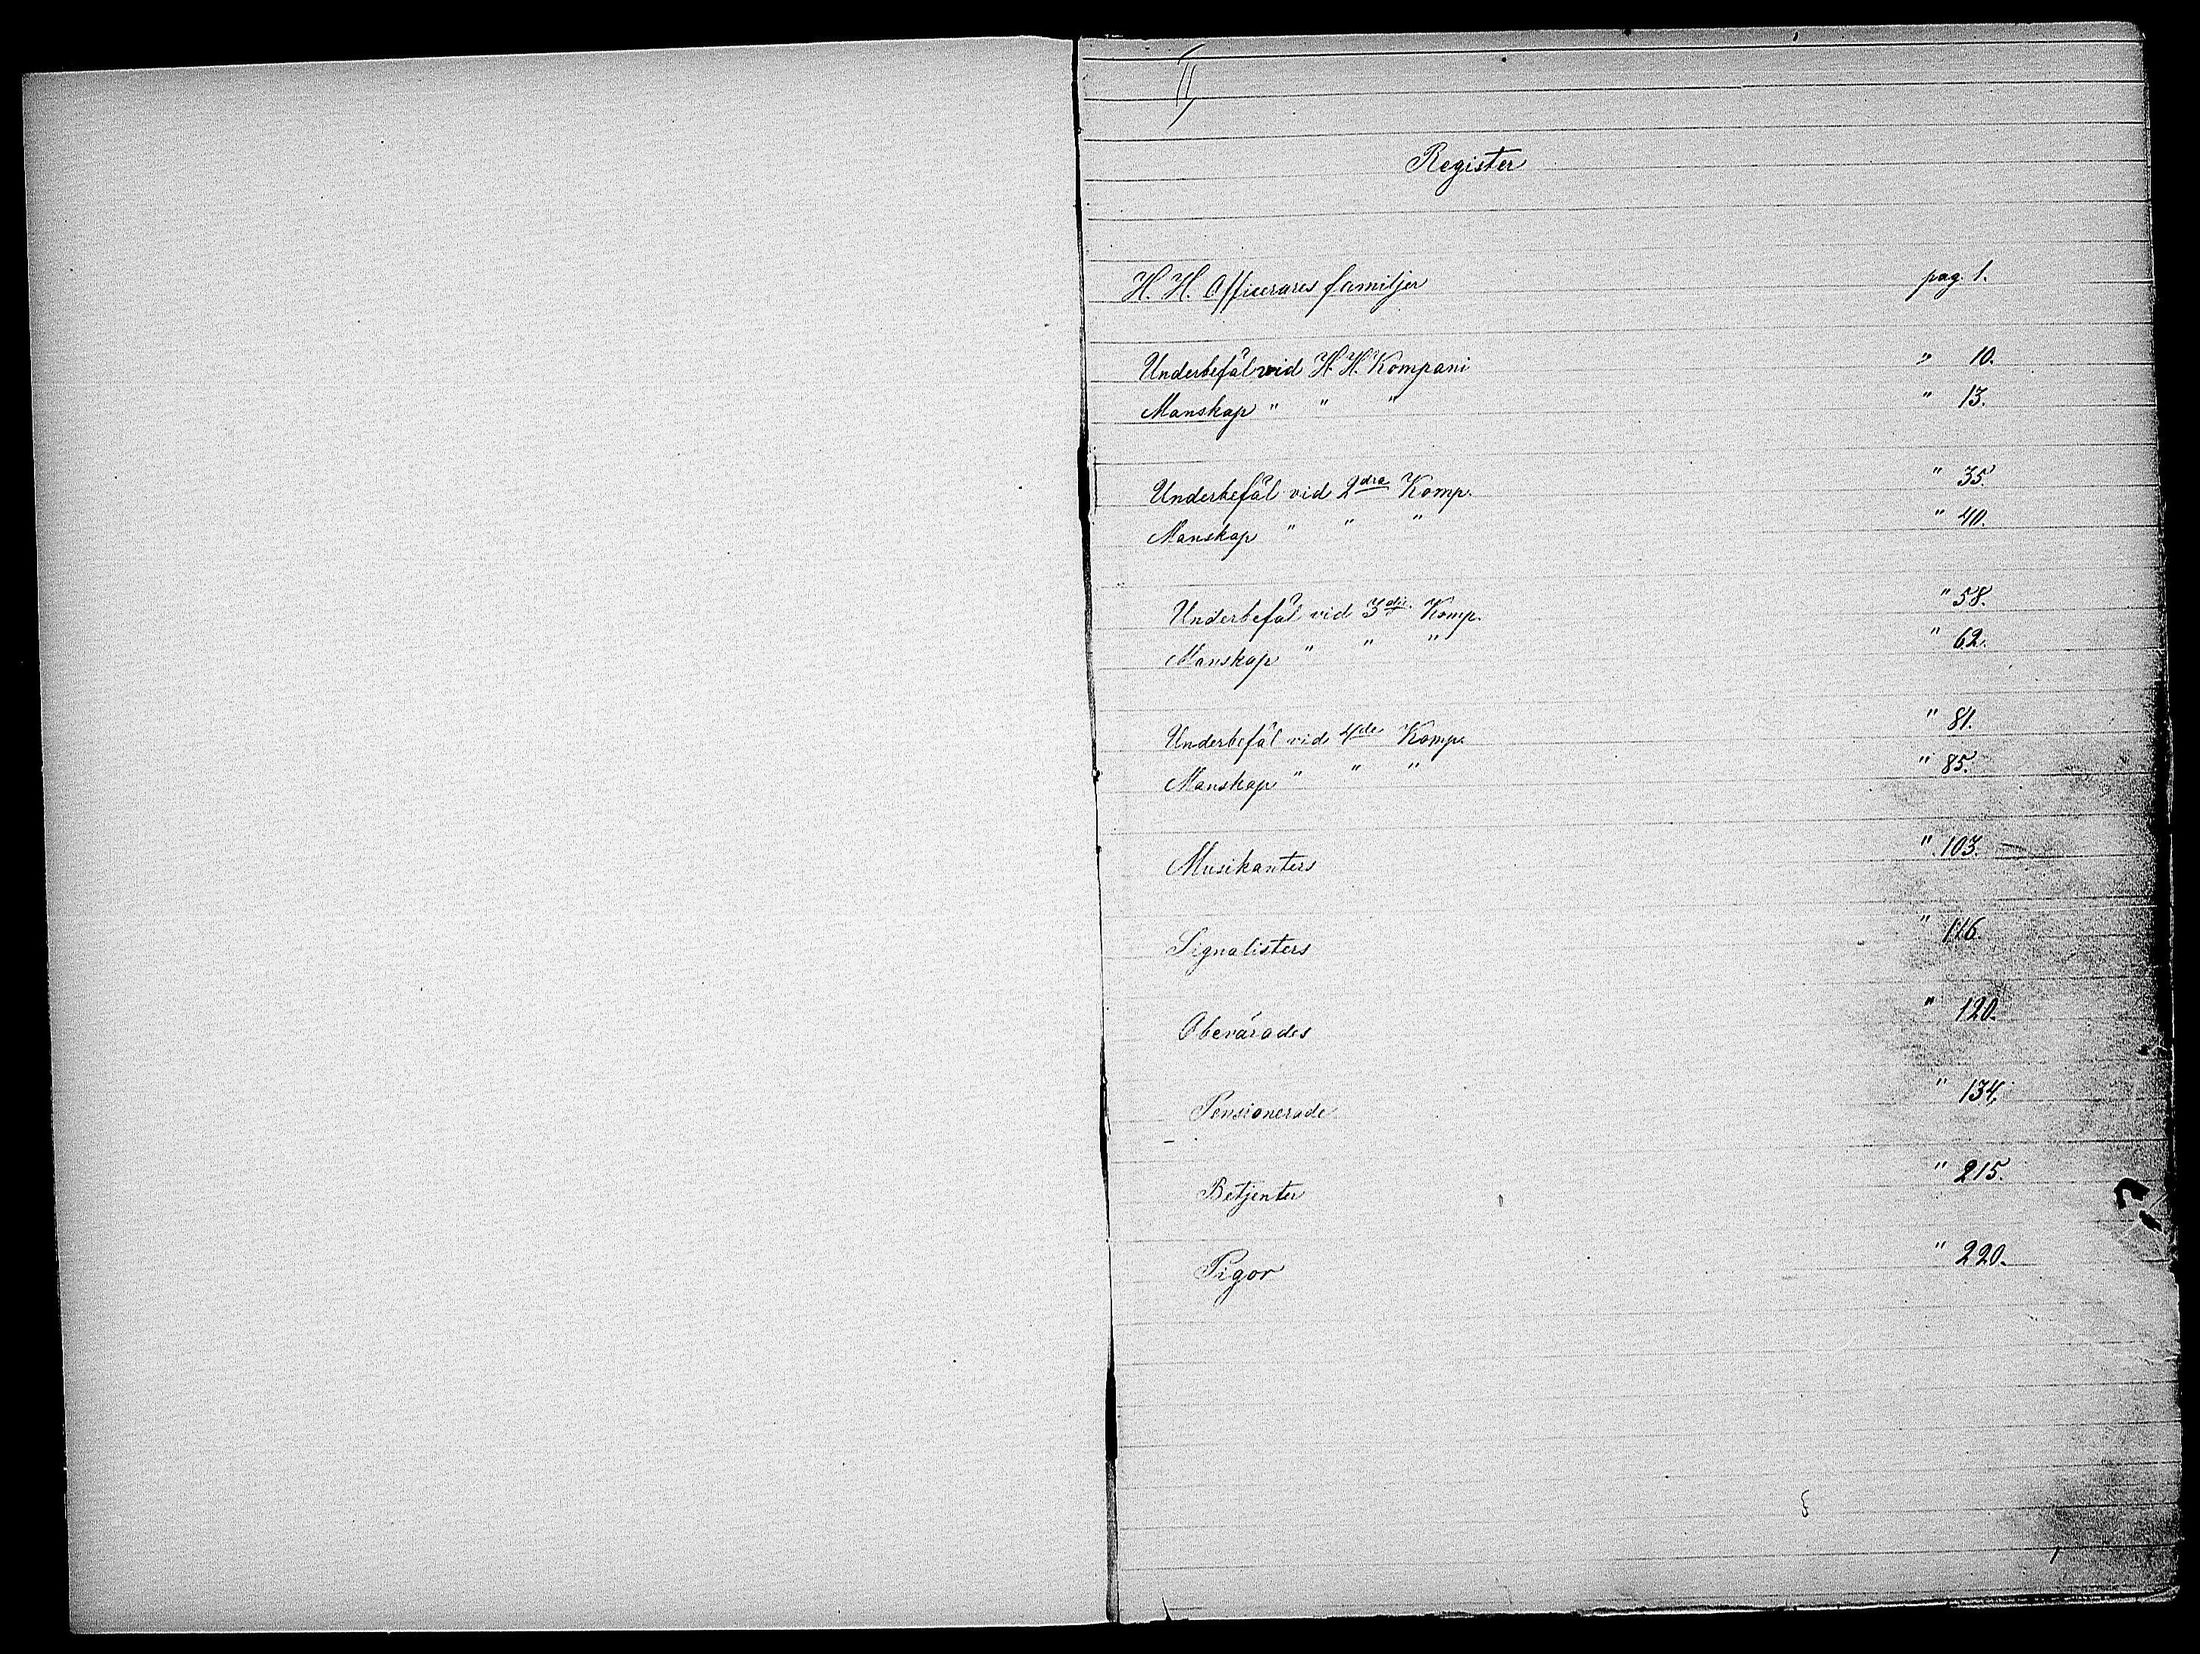 II
Register
H. H. Officerares familjer pag. 1.
Underbefäl vid H. H. Kompani " 10.
Manskap " " " " 13.
Underbefäl vid 2dra Komp. " 35.
Manskap " " " " 40.
Underbefäl vid 3die Komp. " 58.
Manskap " " " " 62.
Underbefäl vid 4de Komp. " 81.
Manskap " " " " 85.
Musikanters " 103.
Signalisters " 116.
Obevärades " 120.
Pensionerade " 134.
Betjenter " 215.
Pigor " 220.